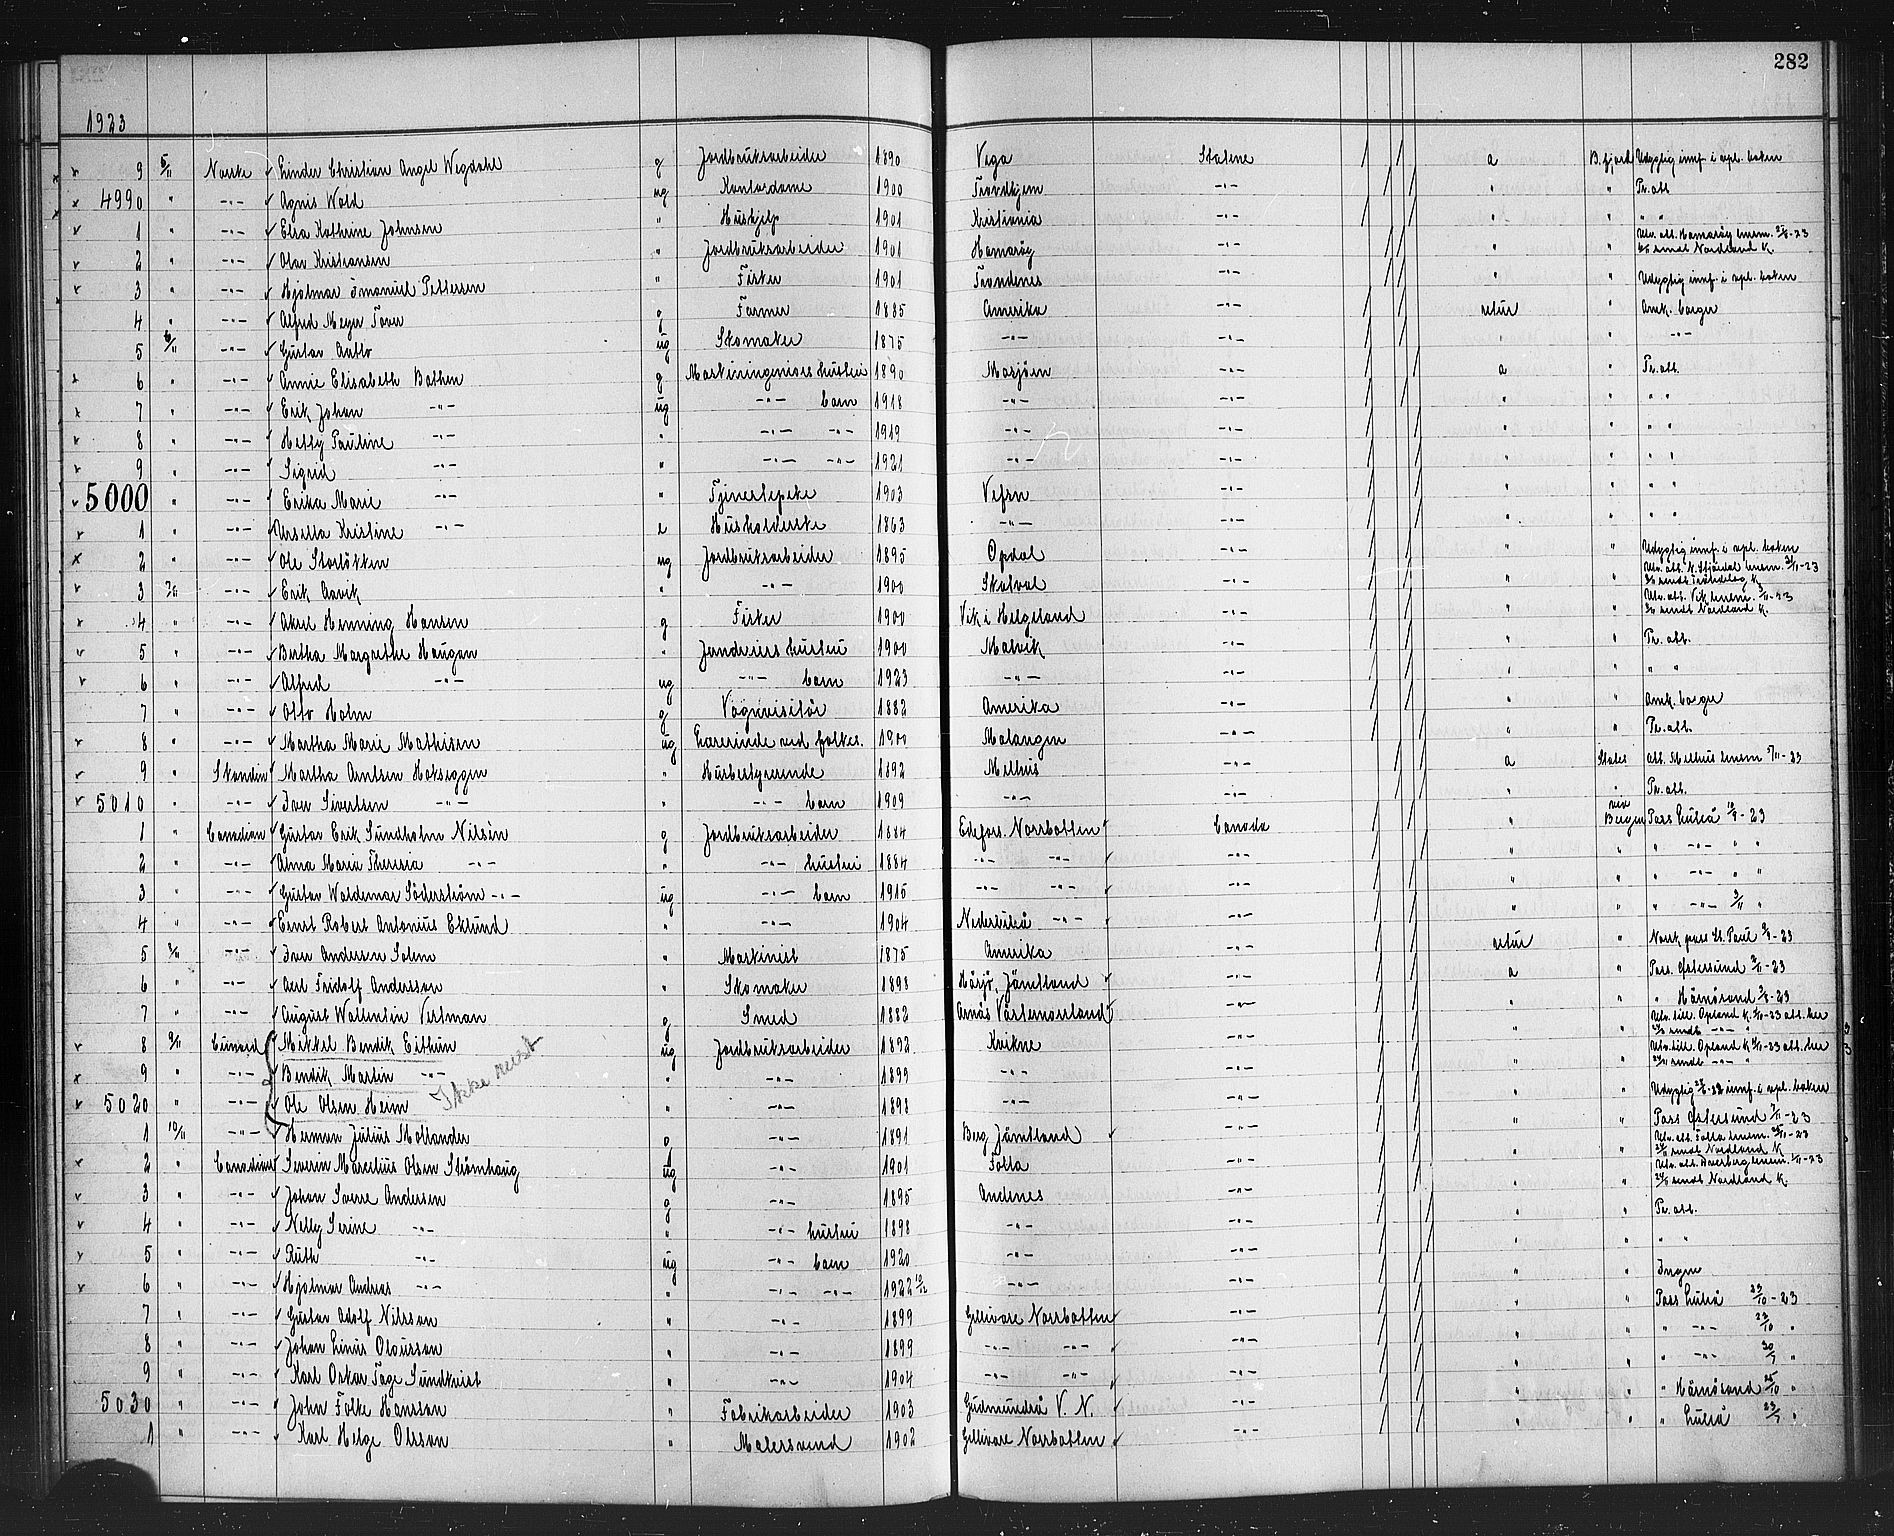 282
1923
9 5/11 Norske Einder Christian Angel Wegdahl g Jordbruksarbeider 1890 Vega Statene a B.fjord Udygtig innf. i vpl. boken
4990 " -"- Agnis Wold ug Kontordame 1900 Trondhjem -"- " " Pr. att
1 " -"- Elsa Kathrine Johnsen " Hushjelp 1901 Kristiania -"- " " " "
2 " -"- Olav Kristiansen " Jordbruksarbeider 1901 Hamarøy -"- " " Utv. att. Hamarøy lnem. -23 sendt Nordland K.
3 " -"- Hjalmar Imanuel Pettersen " Fisker 1901 Trondenes -"- " " Udygtig innf. i vpl. boken
4 " -"- Alfred Meyer Tover g Farmer 1885 Amerika -"- retur " Amk. borger
5 6/11 -"- Gustav Aatto ug Skomaker 1875 -"- -"- " -"-
6 " -"- Annie Elisabeth Bathen g Maskiningeniørs hustru 1890 Mosjøen -"- a " Pr. att.
7 " -"- Erik Johan -"- ug -"- barn 1918 -"- -"- " " " "
8 " -"- Hetty Pauline -"- " -"- -"- 1919 -"- -"- " " " "
9 " -"- Sigrid -"- " -"- -"- 1921 -"- -"- " " " "
5000 " -"- Erika Marie -"- " Tjenestepike 1903 Vefsn -"- " " " "
1 " -"- Ursella Kristine -"- e Husholderske 1863 -"- -"- " " " "
2 " -"- Ole Storløkken ug Jordbruksarbeider 1895 Opdal -"- " " Udygtig innf. i vpl. boken
3 7/11 -"- Erik Aavik " -"- 1900 Skatval -"- " " Utv. att. N. Stjørdal lnem. -23 sendt Trøndelag K.
4 " -"- Aksel Henning Hansen g Fisker 1900 Vik i Helgeland -"- " " Utv. att. Vik lnem. -23 sendt Nordland K.
5 " -"- Bertha Margrethe Haugan " Jandriers hustru 1900 Malvik -"- " " Pr. att.
6 " -"- Alfred -"- ug -"- barn 1923 -"- -"- " " " "
7 " -"- Otto Holm g Vognvisitør 1882 Amerika -"- " " Amk. borger
8 " -"- Martha Marie Mathisen ug Lærerinde ved folkes. 1900 Malangen -"- " " Pr. att.
9 " Skandin Martha Arntsen Hokseggen " Husbestyrerinde 1892 Melhus -"- a Slates att. Melhus lnem 5/11-23
5010 " -"- Iver Sivertsen -"- " -"- barn 1909 -"- -"- " " Pr. att.
1 " Canadian Gustav Erik Sundholm Nilsèn g Jordbruksarbeider 1884 Edefors. Norrbotten Canada " via Bergen Pass Luleå 10/9-23
2 " -"- Alma Maria Theresia -"- " -"- hustru 1884 -"- -"- -"- " " " -"- " "
3 " -"- Gustav Waldemar Söderström -"- ug -"- barn 1915 -"- -"- -"- " " " -"- " "
4 " -"- Ernst Robert Antonius Eklund " -"- 1904 Nederluleå -"- -"- " " " -"- 3/11 "
5 8/11 -"- Iver Andersen Solem " Maskinist 1875 Amerika -"- retur " Norsk pass St. Paul -23
6 " -"- Axel Fridolf Andersson " Skomaker 1898 Härjö, Jämtland -"- a " Pass. Østersund 2/11-23
7 " -"- August Wallentin Vestman g Smed 1882 Arnäs Västernorrland -"- " " " Härnösand -23
8 9/11 Cunard Mikkel Bendik Eithun ug Jordbruksarbeider 1892 Kvikne -"- " " Utv. till. Opland K. -23 att. her sendt -"- "
9 " -"- Bendik Martin -"- " -"- 1899 -"- -"- " " Utv. till. Opland K. -23 att. her sendt -"- "
Ikke reist
5020 " -"- Ole Olsen Heim " -"- 1898 -"- -"- " " Udygtig -22 innf. i vpl. boken
1 10/11 -"- Herman Julius Mollander g -"- 1891 Berg Jämtland -"- " " Pass Østersund 7/11-23
2 " Canadian Severin Marcelius Olsen Strømhaug ug -"- 1901 Folla -"- " " Utv. att. Folla lnem. -23 sendt Nordland K.
3 " -"- Johan Sverre Andersen g -"- 1895 Andenes -"- " " Utv. att. lnem. -23 sendt Nordland K.
4 " -"- Nelly Serine -"- " -"- hustru 1898 -"- -"- " " Pr. att.
5 " -"- Ruth -"- ug -"- barn 1920 -"- -"- " " " "
6 " -"- Hjalmar Andreas -"- " -"- -"- 1922 10/12 -"- -"- " " Ingen
7 " -"- Gustav Adolf Nilsson " -"- 1899 Gellivare Norrbotten -"- " " Pass Luleå 23/10-23
8 " -"- Johan Linus Olausson " -"- 1899 -"- -"- -"- " " " -"- 23/10 "
9 " -"- Karl Oskar Tage Sundkvist " -"- 1904 -"- -"- -"- " " " -"- 30/7 "
5030 " -"- John Folke Hansson " Fabrikarbeider 1903 Gudmundrå V. N. -"- " " " Härnösand 25/10 "
1 " -"- Karl Helge Olsson " Malersvend 1902 Gellivare Norrbotten -"- " " " Luleå 23/7 "